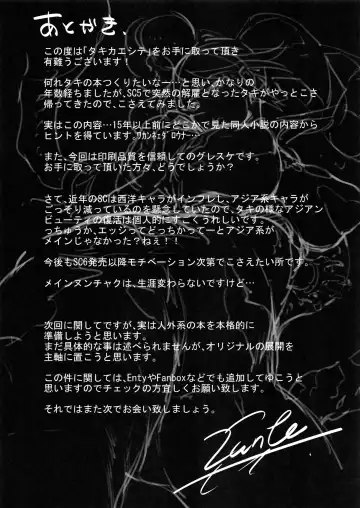 あとがき、
この度は「タキカエシテ」をお手に取って頂き
有難うございます！
何れタキの本つくりたいなー…と思い、かなりの
年数経ちましたが、SC5で突然の解雇となったタキがやっとこさ
帰ってきたので、こさえてみました。
実はこの内容…15年以上前にどこかで見た同人小説の内容から
ヒントを得ています。
また、今回は印刷品質を信頼してのグレスケです。
お手に取って頂いた方々、どうでしょうか？
さて、近年のSCは西洋キャラがインフレし、アジア系キャラが
ごっそり減っているのを懸念していたので、タキの様なアジアン
ビューティの復活は個人的にすごくうれしいです。
っちゅうか、エッジってどっちかってーとアジア系が
メインじゃなかった？ねぇ！！
今後もSC6発売以降モチベーション次第でこさえたい所です。
メインヌンチャクは、生涯変わらないですけど…
次回に関してですが、実は人外系の本を本格的に
準備しようと思います。
まだ具体的な事は述べられませんが、オリジナルの展開を
主軸に置こうと思います。
この件に関しては、EntyやFanboxなどでも追加してゆこうと
思いますのでチェックの方宜しくお願い致します。
それではまた次でお会い致しましょう。